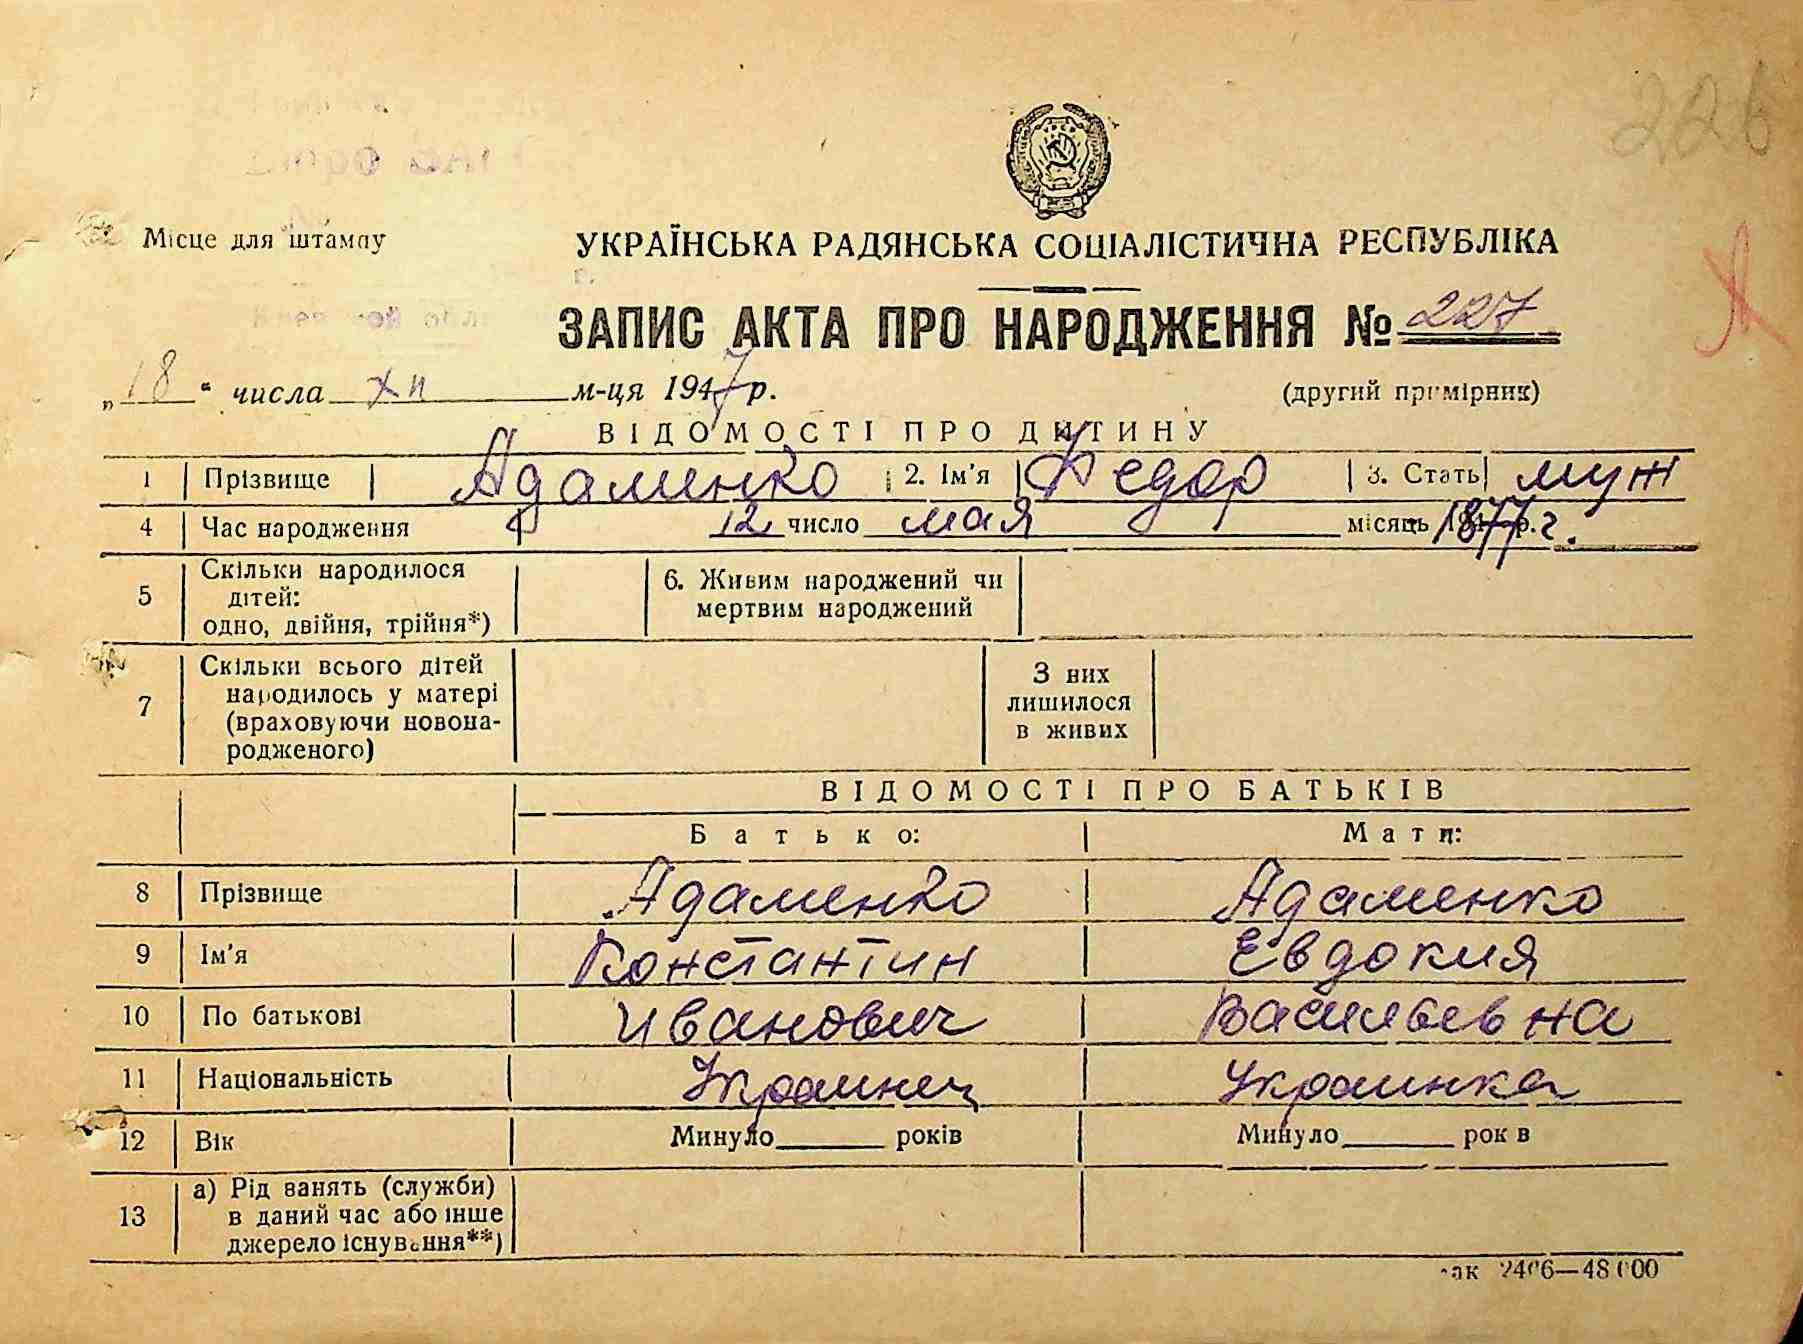 226
Місце для штампу
УКРАЇНСЬКА РАДЯНСЬКА СОЦІАЛІСТИЧНА РЕСПУБЛІКА
ЗАПИС АКТА ПРО НАРОДЖЕННЯ № 227
„18" числа XII м-ця 1947 р. (другий примірник)
ВІДОМОСТІ ПРО ДИТИНУ
1 Прізвище Адаменко 2. Ім'я Федор 3. Стать муж
4 Час народження 12 число мая місяць 1877 г.
5 Скільки народилося дітей: одно, двійня, трійня*) 6. Живим народжений чи мертвим народжений
7 Скільки всього дітей народилось у матері (враховуючи новона-родженого) З них лишилося в живих
ВІДОМОСТІ ПРО БАТЬКІВ
Батько: Мати:
8 Прізвище Адаменко Адаменко
9 Ім'я Константин Евдокия
10 По батькові Иванович Васильевна
11 Національність Украинец Украинка
12 Вік Минуло років Минуло рок в
13 а) Рід занять (служби) в даний час або інше джерело існування**)
ак 2406—48000